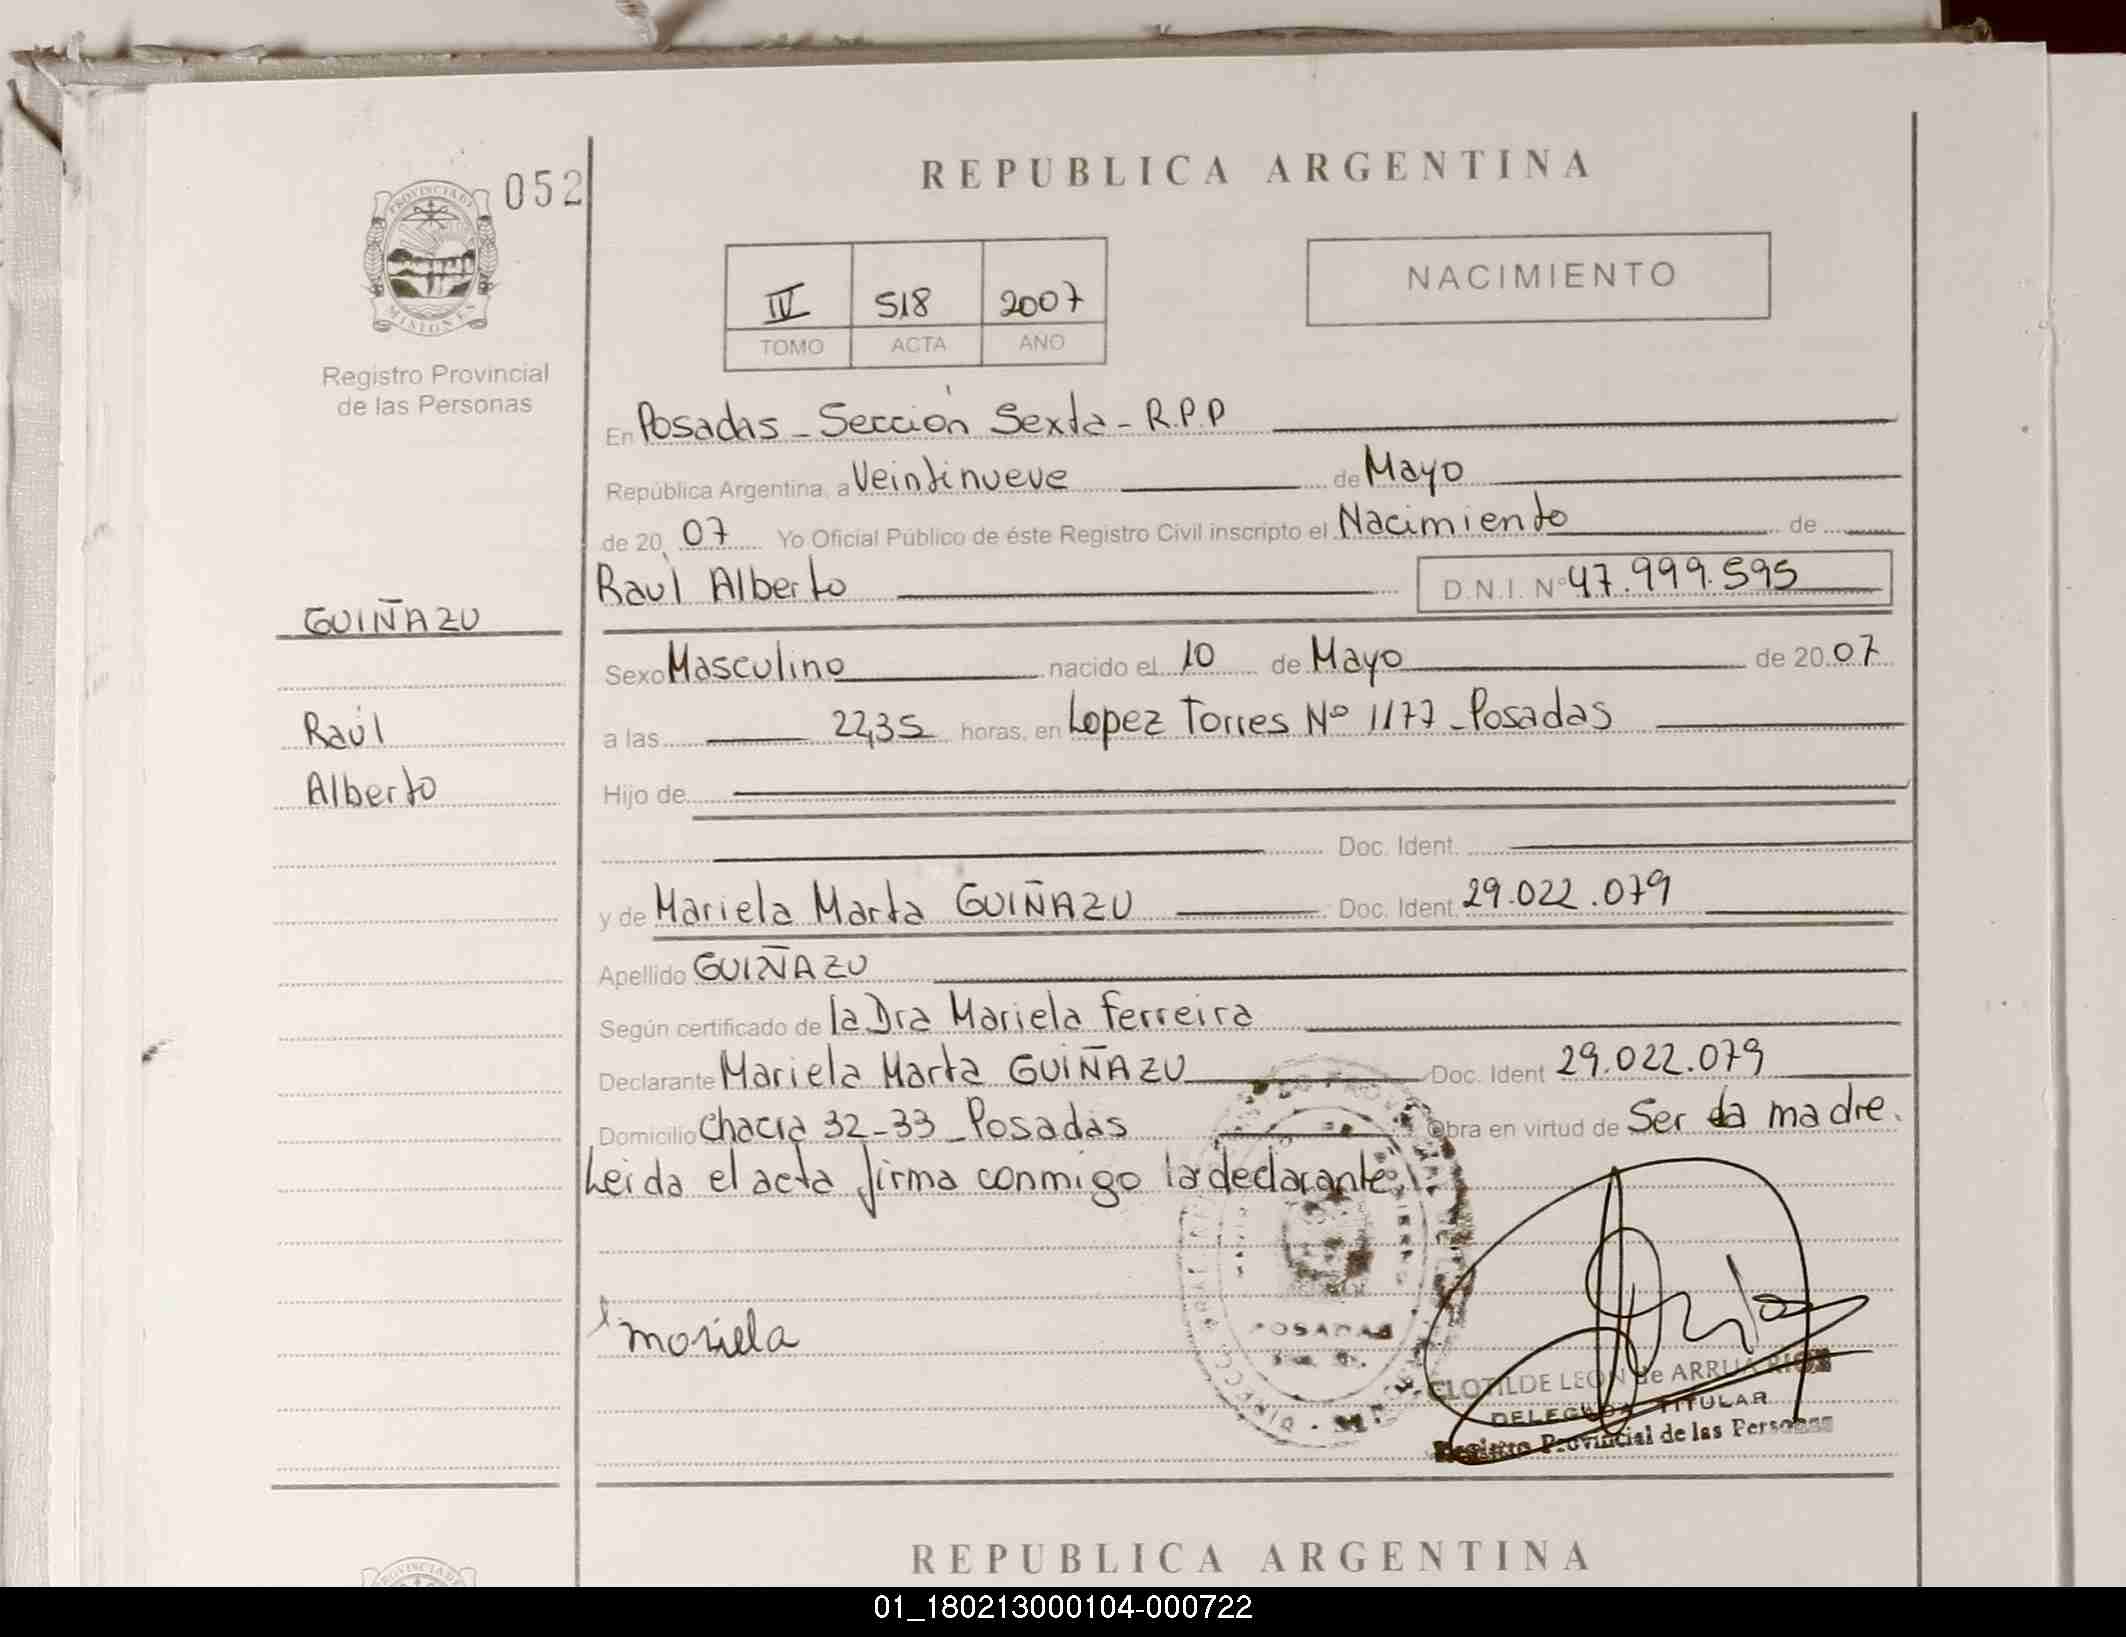 REPUBLICA ARGENTINA
052
PROVINCIA DE
MISIONES
Registro Provincial
de las Personas
NACIMIENTO
IV 518 2007
TOMO ACTA AÑO
En Posadas - Sección Sexta - R.P.P
República Argentina, a Veintinueve de Mayo
de 20 07 Yo Oficial Público de éste Registro Civil inscripto el Nacimiento de
Raúl Alberto D.N.I. Nº 47.999.595
GUIÑAZU
Sexo Masculino nacido el 10 de Mayo de 20 07
Raúl
a las 22,35 horas, en Lopez Torres Nº 1177 - Posadas
Alberto
Hijo de
Doc. Ident.
y de Mariela Marta GUIÑAZU Doc. Ident. 29.022.079
Apellido GUIÑAZU
Según certificado de la Dra Mariela Ferreira
Declarante Mariela Marta GUIÑAZU Doc. Ident 29.022.079
Domicilio Chacra 32-33 - Posadas Obra en virtud de Ser la madre.
Leida el acta firma conmigo la declarante.
mariela
POSADAS
CLOTILDE LEON de ARRUA RIOS
DELEGADA TITULAR
Registro Provincial de las Personas
REPUBLICA ARGENTINA
01_180213000104-000722